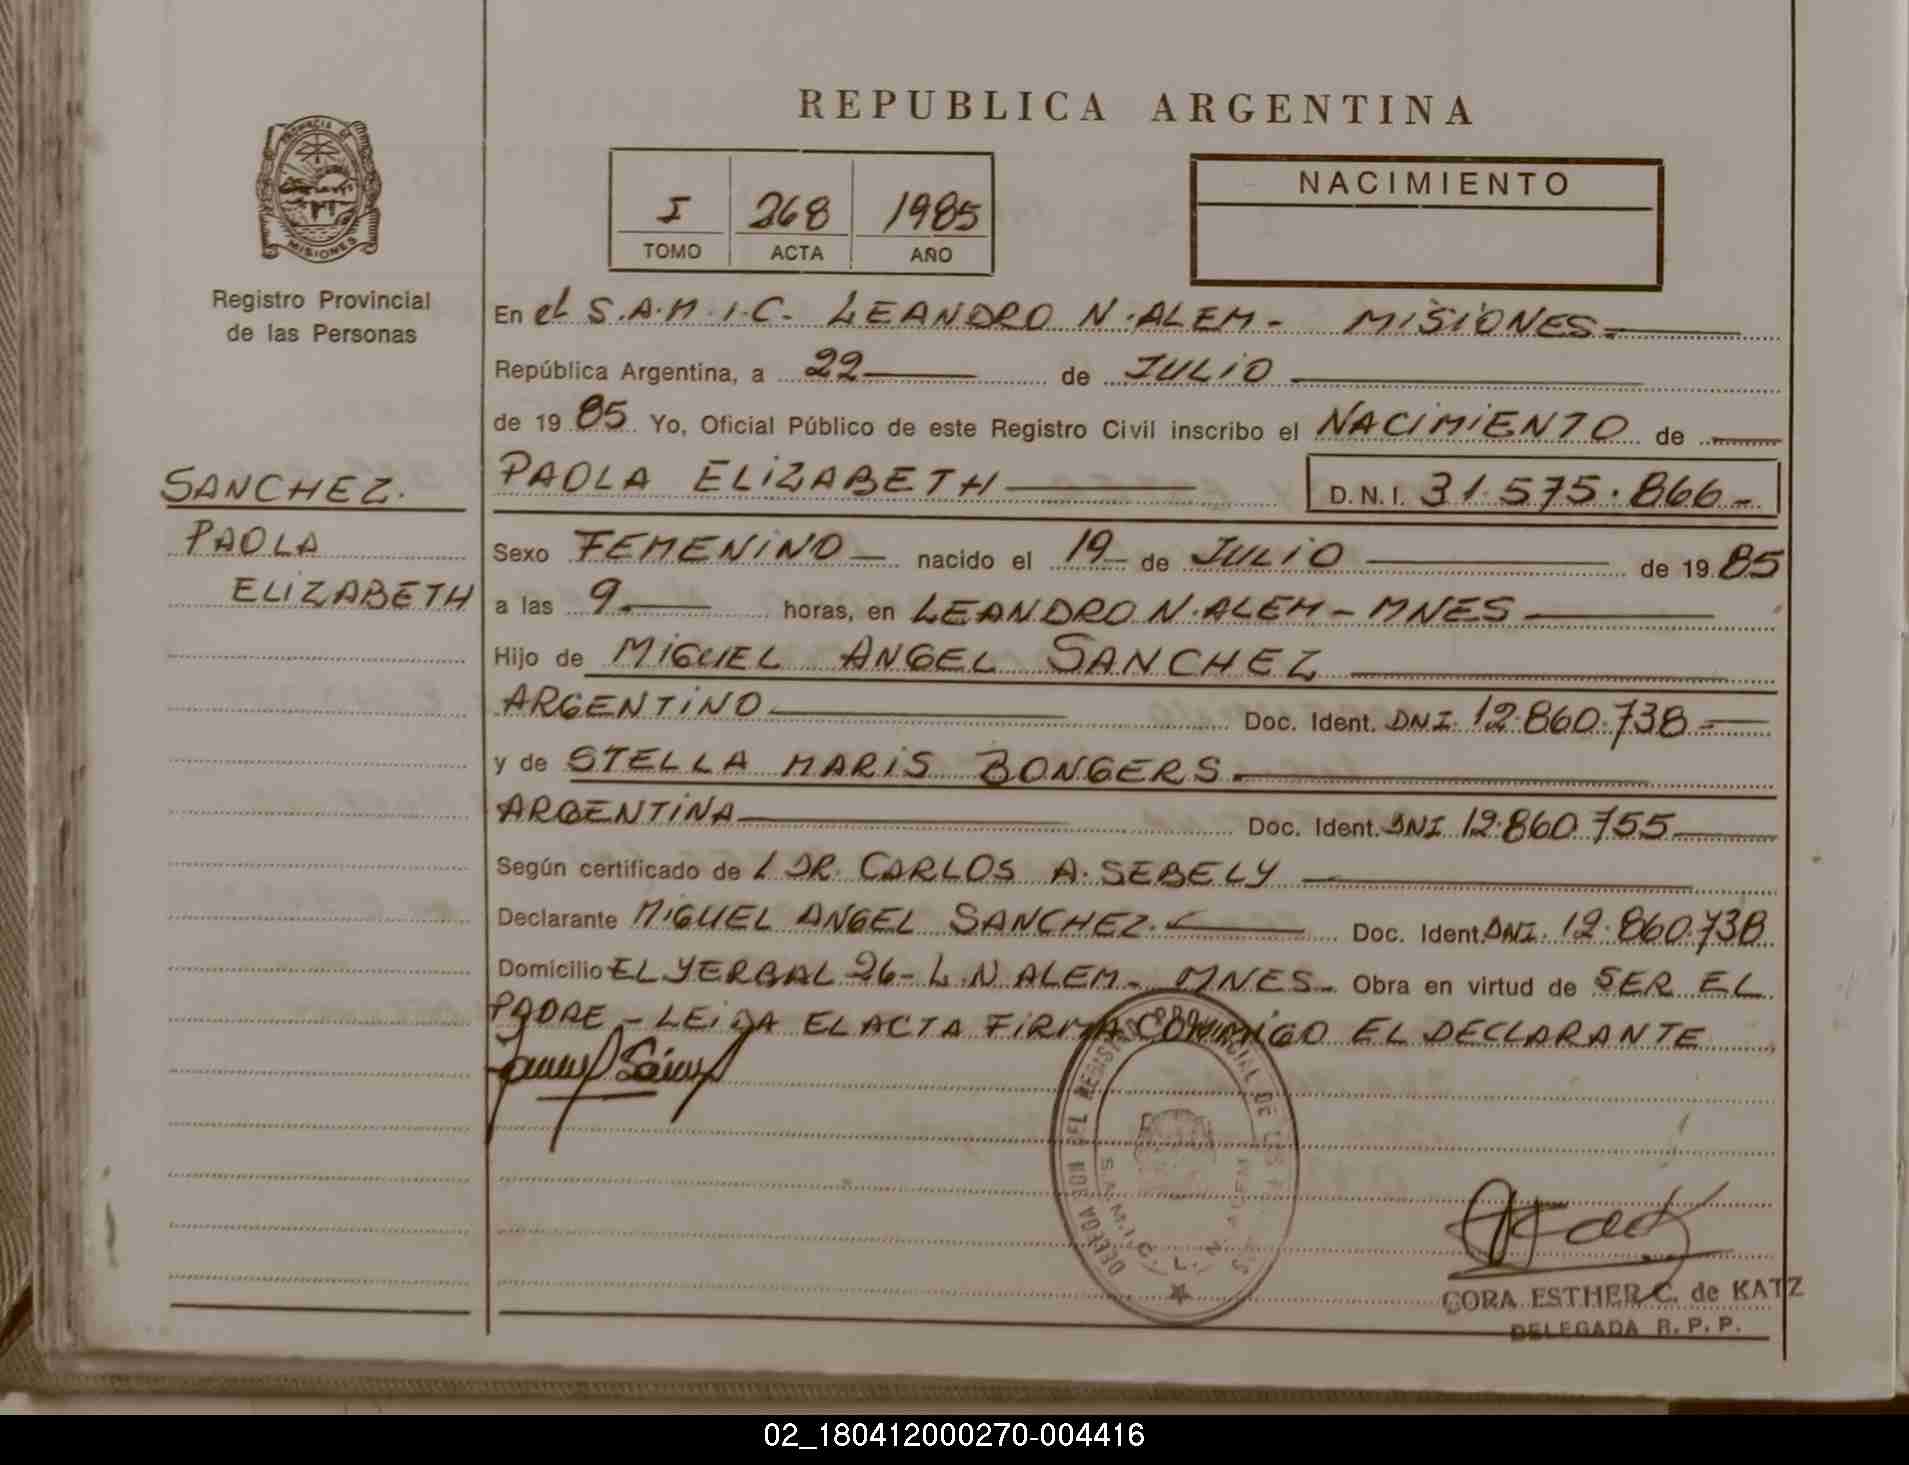 REPUBLICA ARGENTINA
PROVINCIA DE
MISIONES
Registro Provincial
de las Personas
I 268 1985
TOMO ACTA AÑO
NACIMIENTO
En el S.A.M.I.C. LEANDRO N. ALEM - MISIONES
República Argentina, a 22 de JULIO
de 1985 Yo, Oficial Público de este Registro Civil inscribo el NACIMIENTO de
SANCHEZ.
PAOLA
ELIZABETH
PAOLA ELIZABETH D.N.I. 31.575.866-
Sexo FEMENINO nacido el 19 de JULIO de 1985
a las 9 horas, en LEANDRO N. ALEM - MNES
Hijo de MIGUEL ANGEL SANCHEZ
ARGENTINO Doc. Ident. DNI. 12.860.738
y de STELLA MARIS BONGERS.
ARGENTINA Doc. Ident. DNI 12.860.755
Según certificado de L DR. CARLOS A. SEBELY
Declarante MIGUEL ANGEL SANCHEZ. Doc. Ident. DNI. 12.860.738
Domicilio EL YERBAL 26 - L.N. ALEM - MNES - Obra en virtud de SER EL
PADRE - LEIDA EL ACTA FIRMA CONMIGO EL DECLARANTE
DELEGACION DEL REGISTRO PROVINCIAL DE LAS
S.A.M.I.C. L. N. ALEM
CORA ESTHER C. de KATZ
DELEGADA R. P. P.
02_180412000270-004416